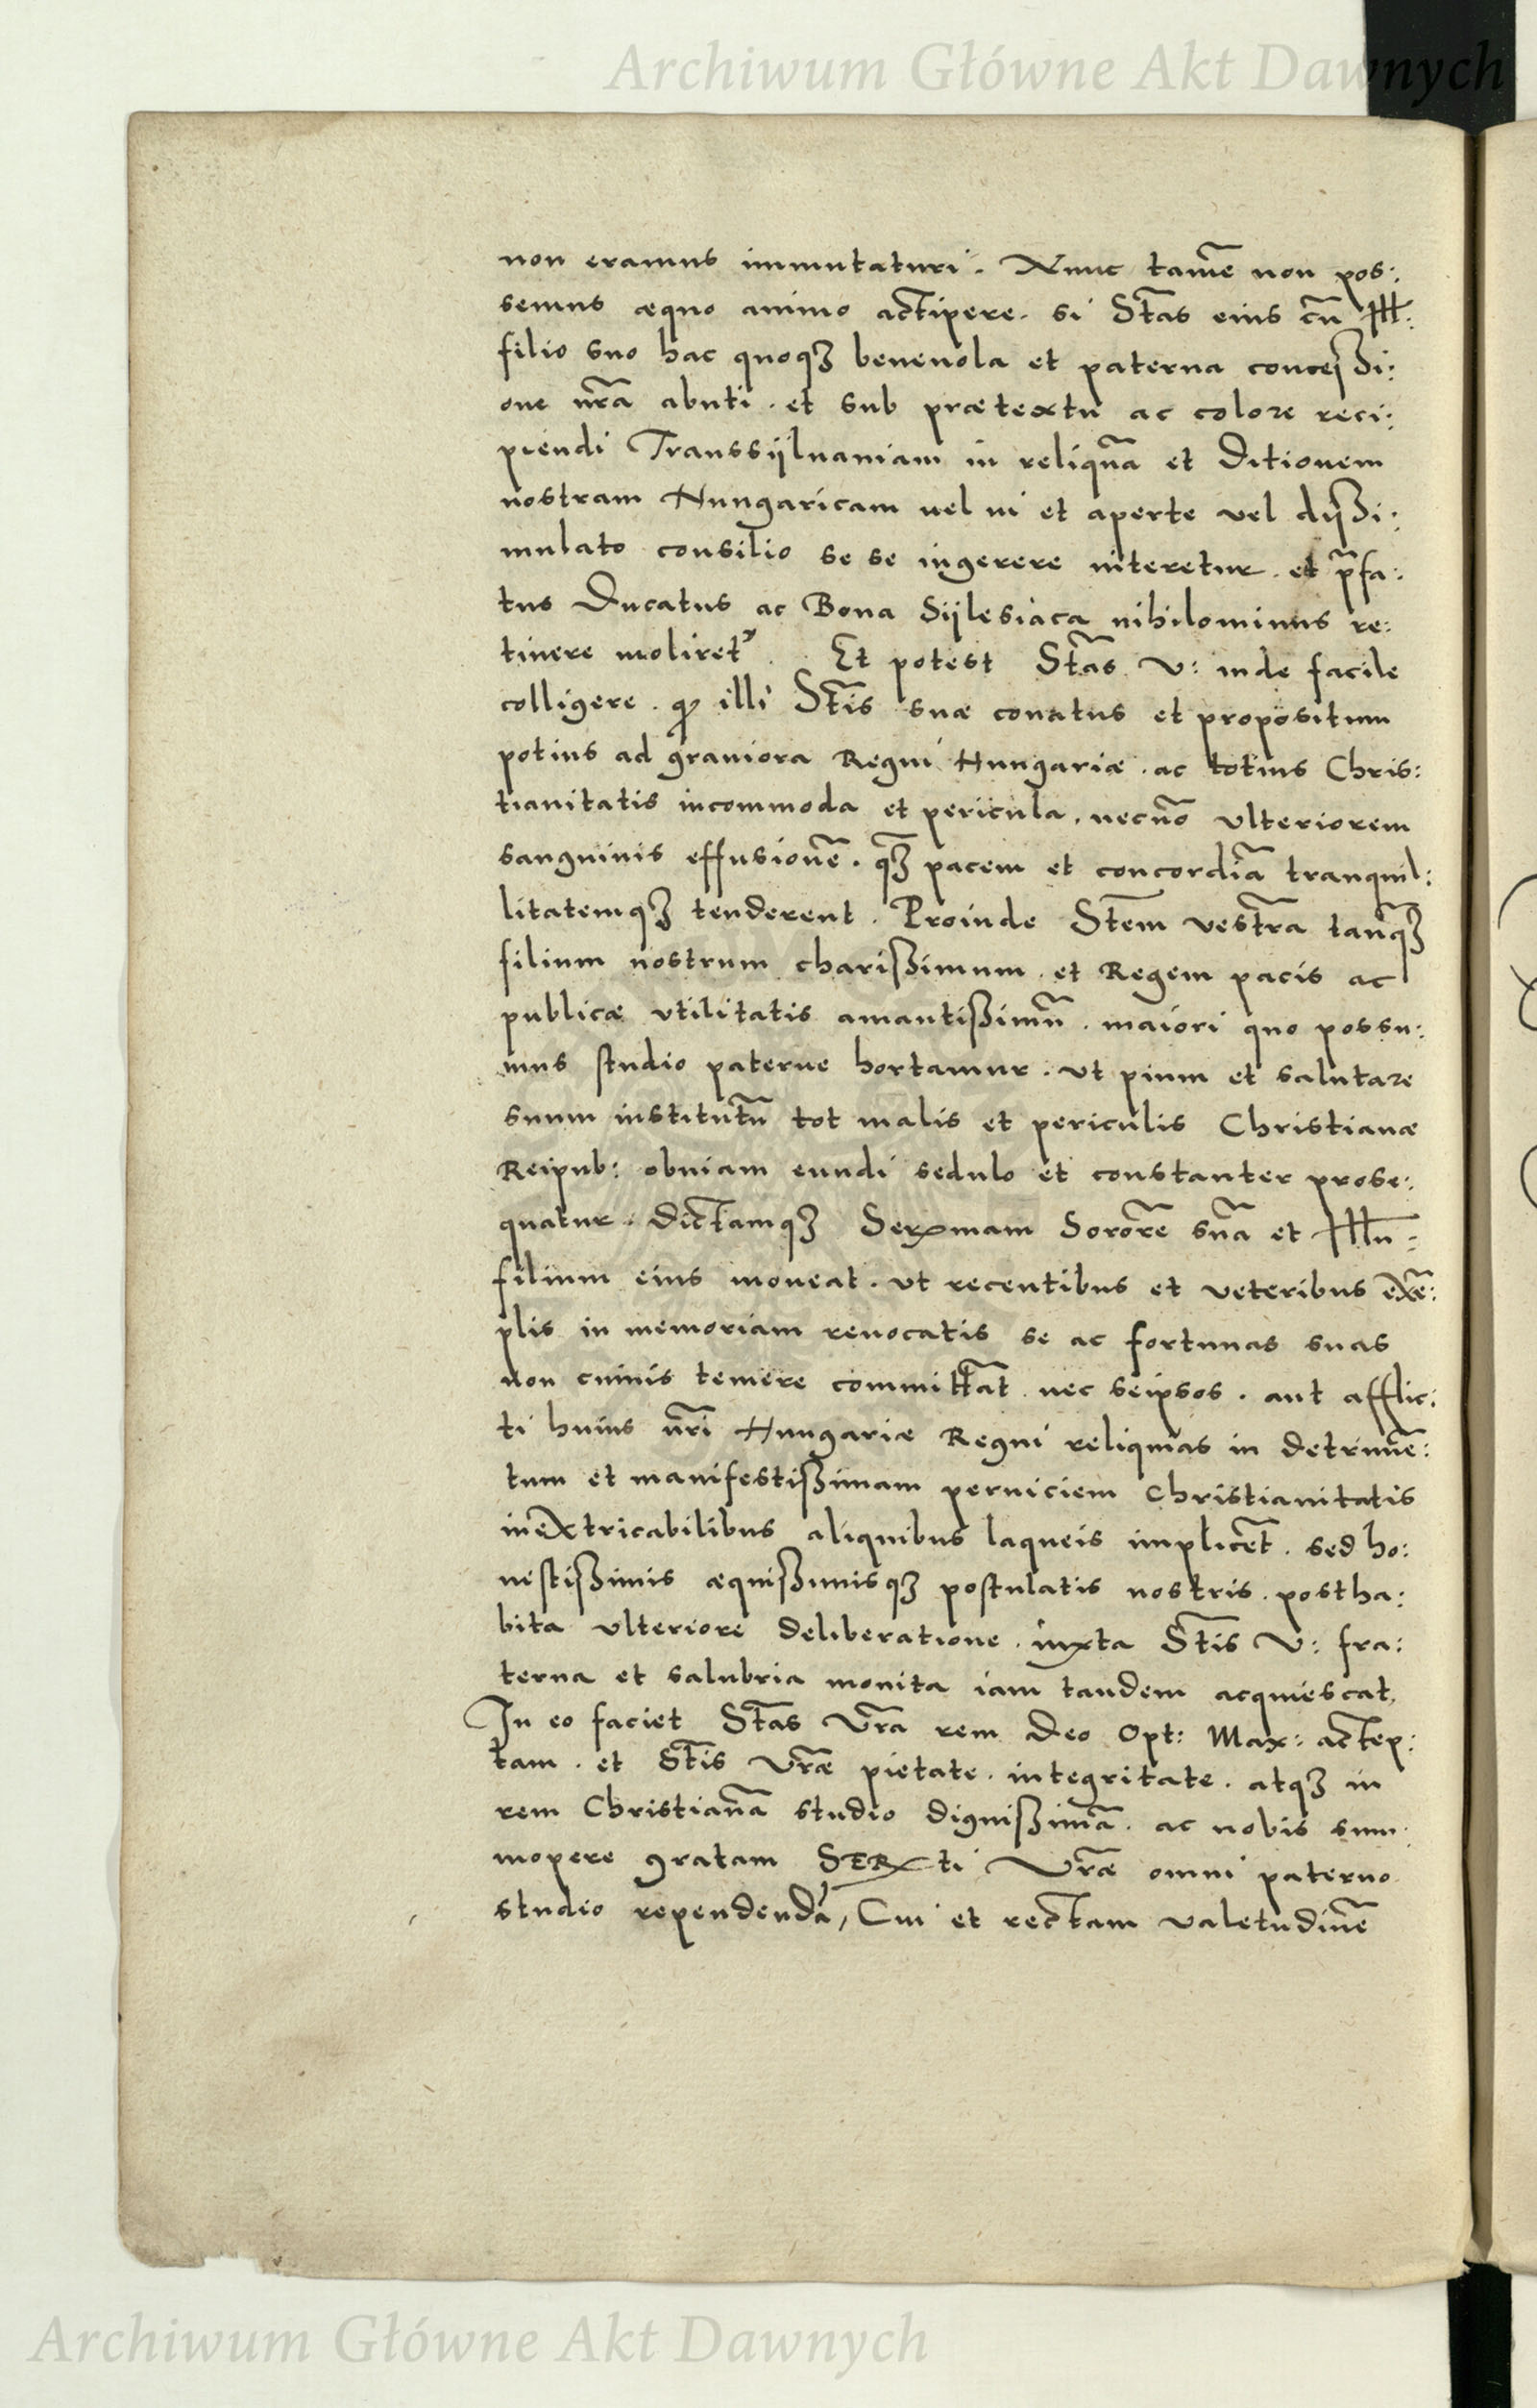 Archiwum Główne Akt Dawnych
non eramus immutaturi. Nunc tamē non pos:
semus æquo animo accipere. si Stas eius cū Ill:
filio suo hac quoqꝫ beneuola et paterna conceßi:
one nrā abuti. et sub prætextu ac colore reci:
piendi Transsijluaniam in reliquā et Ditionem
nostram Hungaricam uel ui et aperte vel dißi:
mulato consilio se se ingerere niteretur. et p̄fa:
tus Ducatus ac Bona Sijlesiaca nihilominus re:
tinere moliret᷒. Et potest Stas V: inde facile
colligere. ꝙ illi Stis suæ conatus et propositum
potius ad grauiora Regni Hungariæ. ac totius Chris:
tianitatis incommoda et pericula, necnō ulteriorem
sanguinis effusionē. q̄ꝫ pacem et concordiā tranquil:
litatemqꝫ tenderent. Proinde Stem vestrā tanq̄ꝫ
filium nostrum charißimum. et Regem pacis ac
publicæ vtilitatis amantißimū. maiori quo possu:
mus studio paterne hortamur. vt pium et salutare
suum institutū tot malis et periculis Christianæ
Reipub: obuiam eundi sedulo et constanter prose:
quatur. Dictamqꝫ Serxmam Sororē suā et Illu:
filium eius moueat. ut recentibus et veteribus exē:
plis in memoriam reuocatis se ac fortunas suas
non cuiuis temere committāt. nec seipsos. aut afflic:
ti huius nrī Hungariæ Regni reliquias in detrimē:
tum et manifestißimam perniciem Christianitatis
inextricabilibus aliquibus laqueis implicēt. sed ho:
nestißimis æquißimisqꝫ postulatis nostris. postha:
bita ulteriore deliberatione. iuxta Stis V: fra:
terna et salubria monita iam tandem acquiescat.
In eo faciet Stas Vrā rem Deo Opt: Max: accep:
tam. et Stis Vræ pietate. integritate. atqꝫ in
rem Christianā studio dignißimā. ac nobis sum:
mopere gratam SERxti Vræ omni paterno
studio rependendā, Cui et rectam valetudinē
Archiwum Główne Akt Dawnych